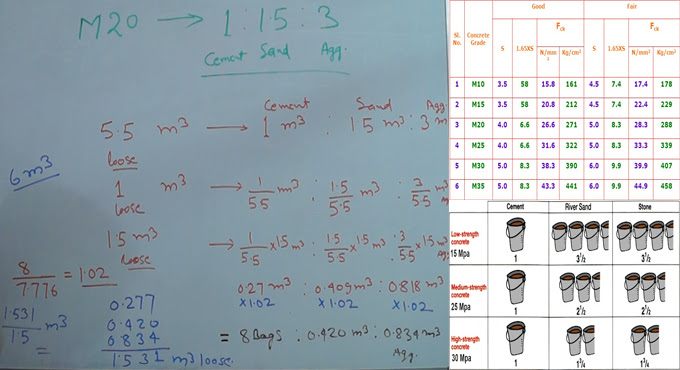 M20 → 1 : 1.5 : 3
Cement Sand Agg.
Cement Sand Agg.
5.5 m³ → 1 m³ : 1.5 m³ : 3 m³
loose
6m³
1 m³ → 1/5.5 m³ : 1.5/5.5 m³ : 3/5.5 m³
loose
1.5 m³ → 1/5.5 × 1.5 m³ : 1.5/5.5 × 1.5 m³ : 3/5.5 × 1.5 m³
loose Agg.
8/7.776 = 1.02
0.27 m³ : 0.409 m³ : 0.818 m³
×1.02 ×1.02 ×1.02
1.531/1.5 m³
=
0.277
0.420
0.834
1.531 m³ loose.
= 8 Bags : 0.420 m³ : 0.834 m³
Agg.
Good Fair
Fck Fck
Sl. No. Concrete Grade S 1.65XS N/mm² Kg/cm² S 1.65XS N/mm² Kg/cm²
1 M10 3.5 58 15.8 161 4.5 7.4 17.4 178
2 M15 3.5 58 20.8 212 4.5 7.4 22.4 229
3 M20 4.0 6.6 26.6 271 5.0 8.3 28.3 288
4 M25 4.0 6.6 31.6 322 5.0 8.3 33.3 339
5 M30 5.0 8.3 38.3 390 6.0 9.9 39.9 407
6 M35 5.0 8.3 43.3 441 6.0 9.9 44.9 458
Cement River Sand Stone
Low-strength concrete
15 Mpa 1 3½ 3½
Medium-strength concrete
25 Mpa 1 2½ 2½
High-strength concrete
30 Mpa 1 1¾ 1¾